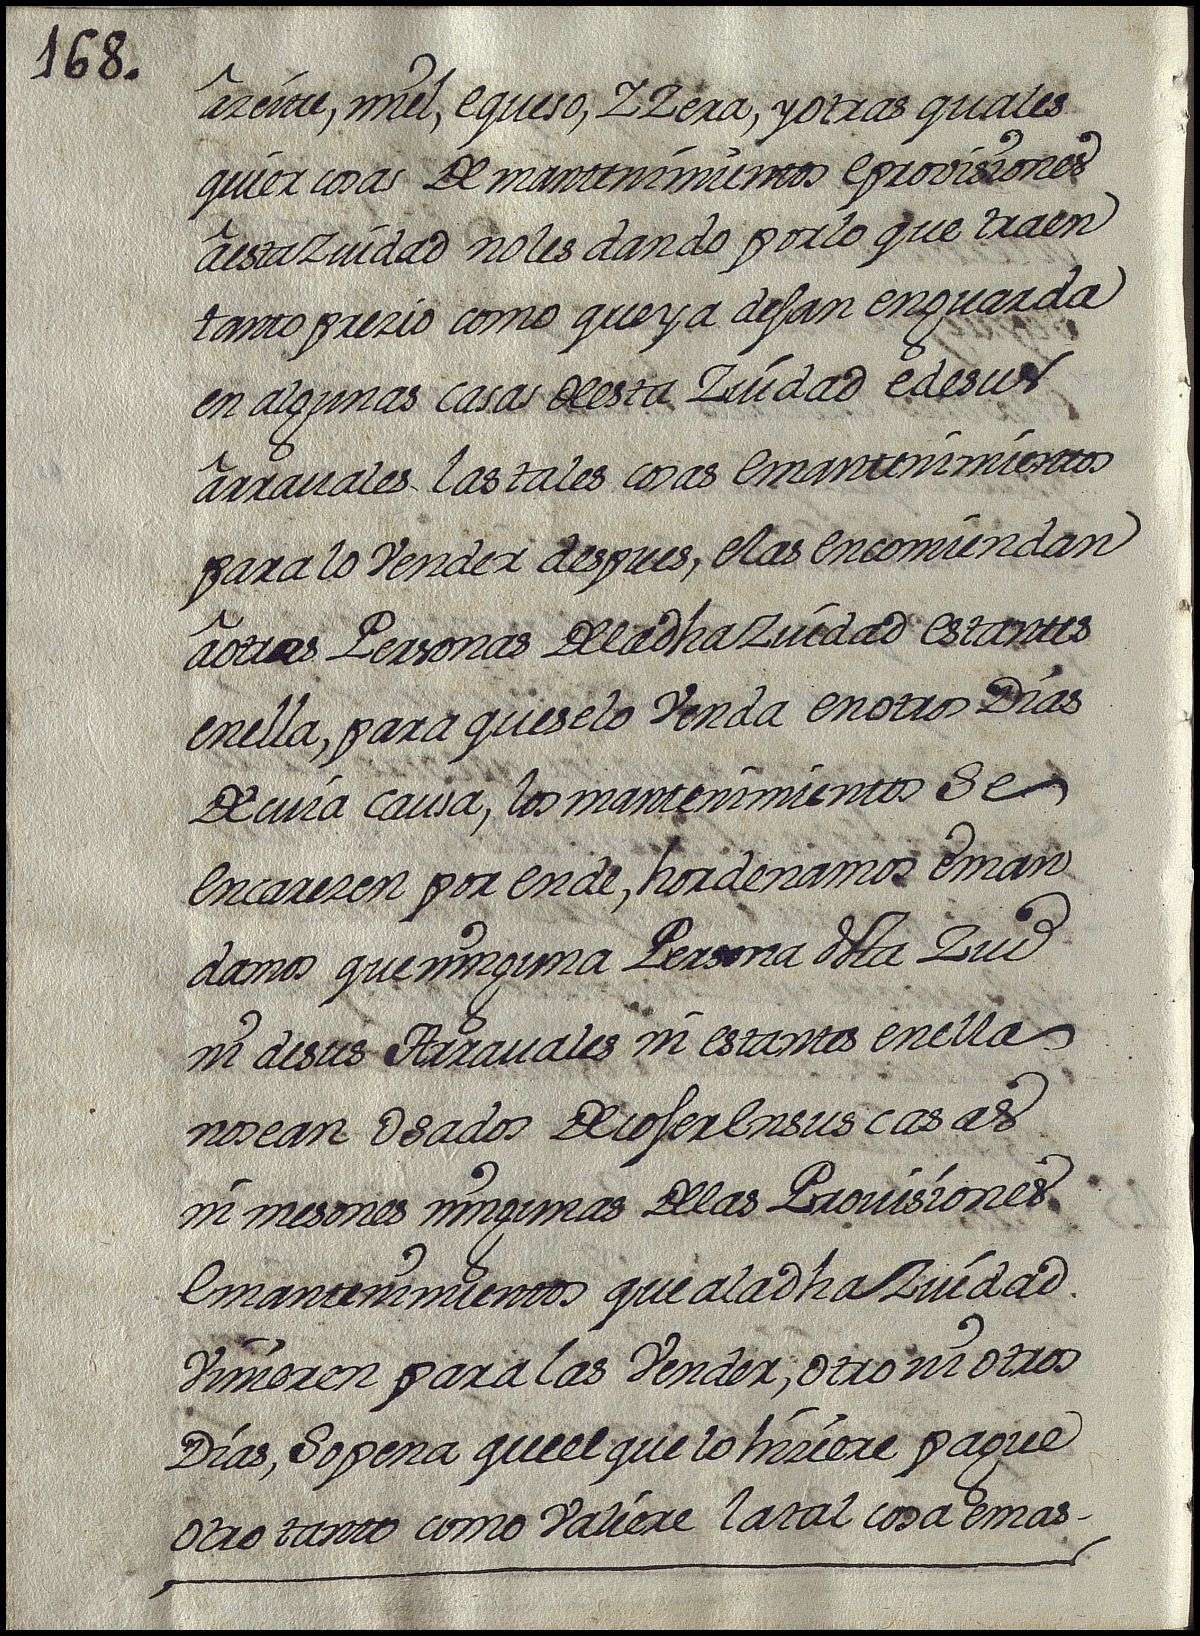 168.
azeite, miel, e queso, ZZera, y otras quales
quier cosas de mantenimientos e provisiones
a esta Zuidad no les dando por lo que traen
tanto prezio como que ya desan en guarda
en algunas casas desta Zuidad e de sus
arrauales las tales cosas e mantenimientos
para lo Vender despues, e las encomiendan
a otras Personas de la dha Zuidad estantes
en ella, para que se lo Venda en otros Dias
de cuia causa, los mantenimientos Se
encarezen por ende, hordenamos e man
damos que ninguna Persona dsta Zuid
ni de sus Arrauales ni estantes en ella
no sean osados de coser en sus casas
ni mesones ningunas de las Prouisiones
e mantenimientos que a la dha Zuidad.
Vinieren para las Vender, otro ni otros
Dias, So pena que el que lo hiziere pague
otro tanto como Valiere la tal cosa e mas-